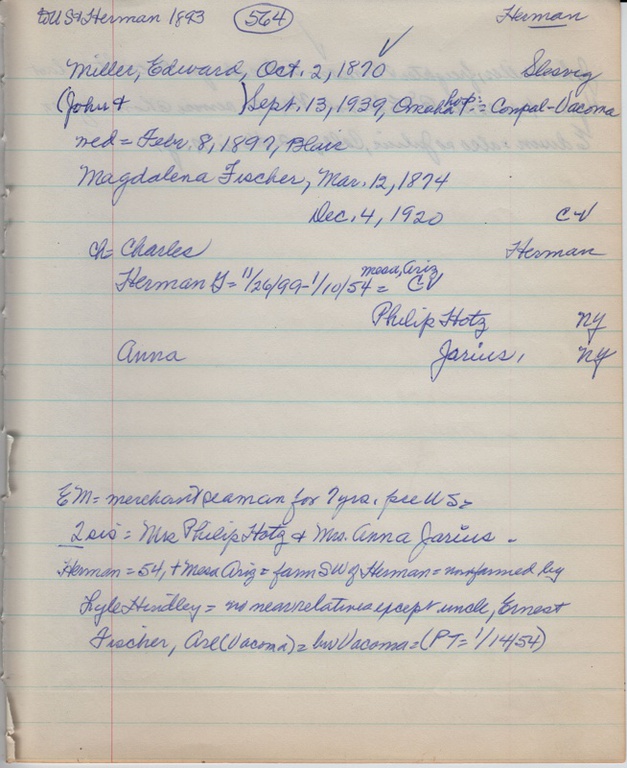 to US & Herman 1893 564 Herman
Miller, Edward, Oct. 2, 1870 Slesvig
(John & ) Sept. 13, 1939, Omaha hosp. = Compal-Vacoma
wed = Febr. 8, 1897, Blair
Magdalena Fischer, Mar. 12, 1874
Dec. 4, 1920 CV
ch = Charles Herman
Herman G = 11/26/99 - 1/10/54 = Mesa, Ariz CV
Philip Hotz NY
Anna Jarius, NY
EM = merchant seaman for 7 yrs. pre US =
2 sis = Mrs Philip Hotz & Mrs. Anna Jarius -
Herman = 54, + Mesa Ariz = farm SW of Herman = now farmed by
Lyle Hindley = no near relatives except uncle, Ernest
Fischer, Arl (Vacoma) = bur Vacoma = (PT = 1/14/54)